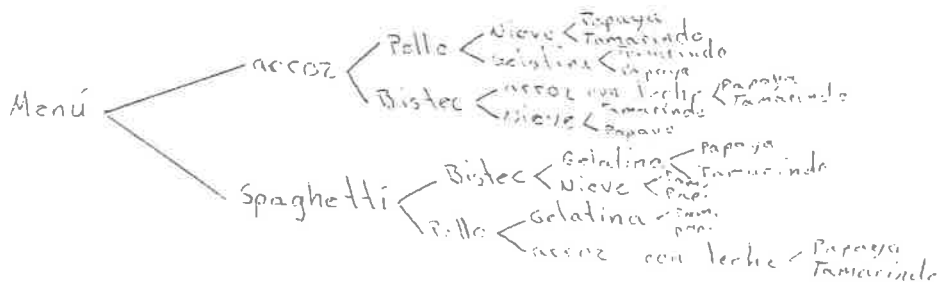 Menú
arroz
Pollo
Nieve
Papaya
Tamarindo
Gelatina
Tamarindo
Papaya
Bistec
arroz con leche
Papaya
Tamarindo
Nieve
Tamarindo
Papaya
Spaghetti
Bistec
Gelatina
Papaya
Tamarindo
Nieve
Tam.
Pap.
Pollo
Gelatina
Tam.
pap.
arroz con leche
Papaya
Tamarindo